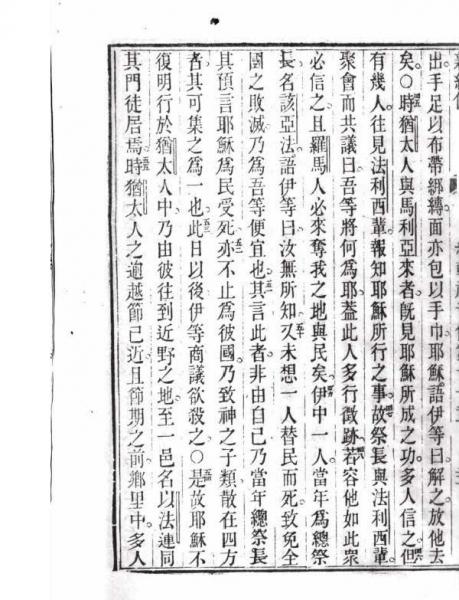 出手足以布帶綁縛面亦包以手巾耶穌語伊等曰解之放他去
矣○時猶太人與馬利亞來者旣見耶穌所成之功多人信之但
有幾人往見法利西輩報知耶穌所行之事故祭長與法利西輩
聚會而共議曰吾等將何爲耶蓋此人多行徵跡若容他如此衆
必信之且羅馬人必來奪我之地與民矣伊中一人當年爲總祭
長名該亞法語伊等曰汝無所知又未想一人替民而死致免全
國之敗滅乃爲吾等便宜也其言此者非由自己乃當年總祭長
其預言耶穌爲民受死亦不止爲彼國乃致神之子類散在四方
者其可集之爲一也此日以後伊等商議欲殺之○是故耶穌不
復明行於猶太人中乃由彼往到近野之地至一邑名以法連同
其門徒居焉時猶太人之逾越節已近且節期之前鄉里中多人